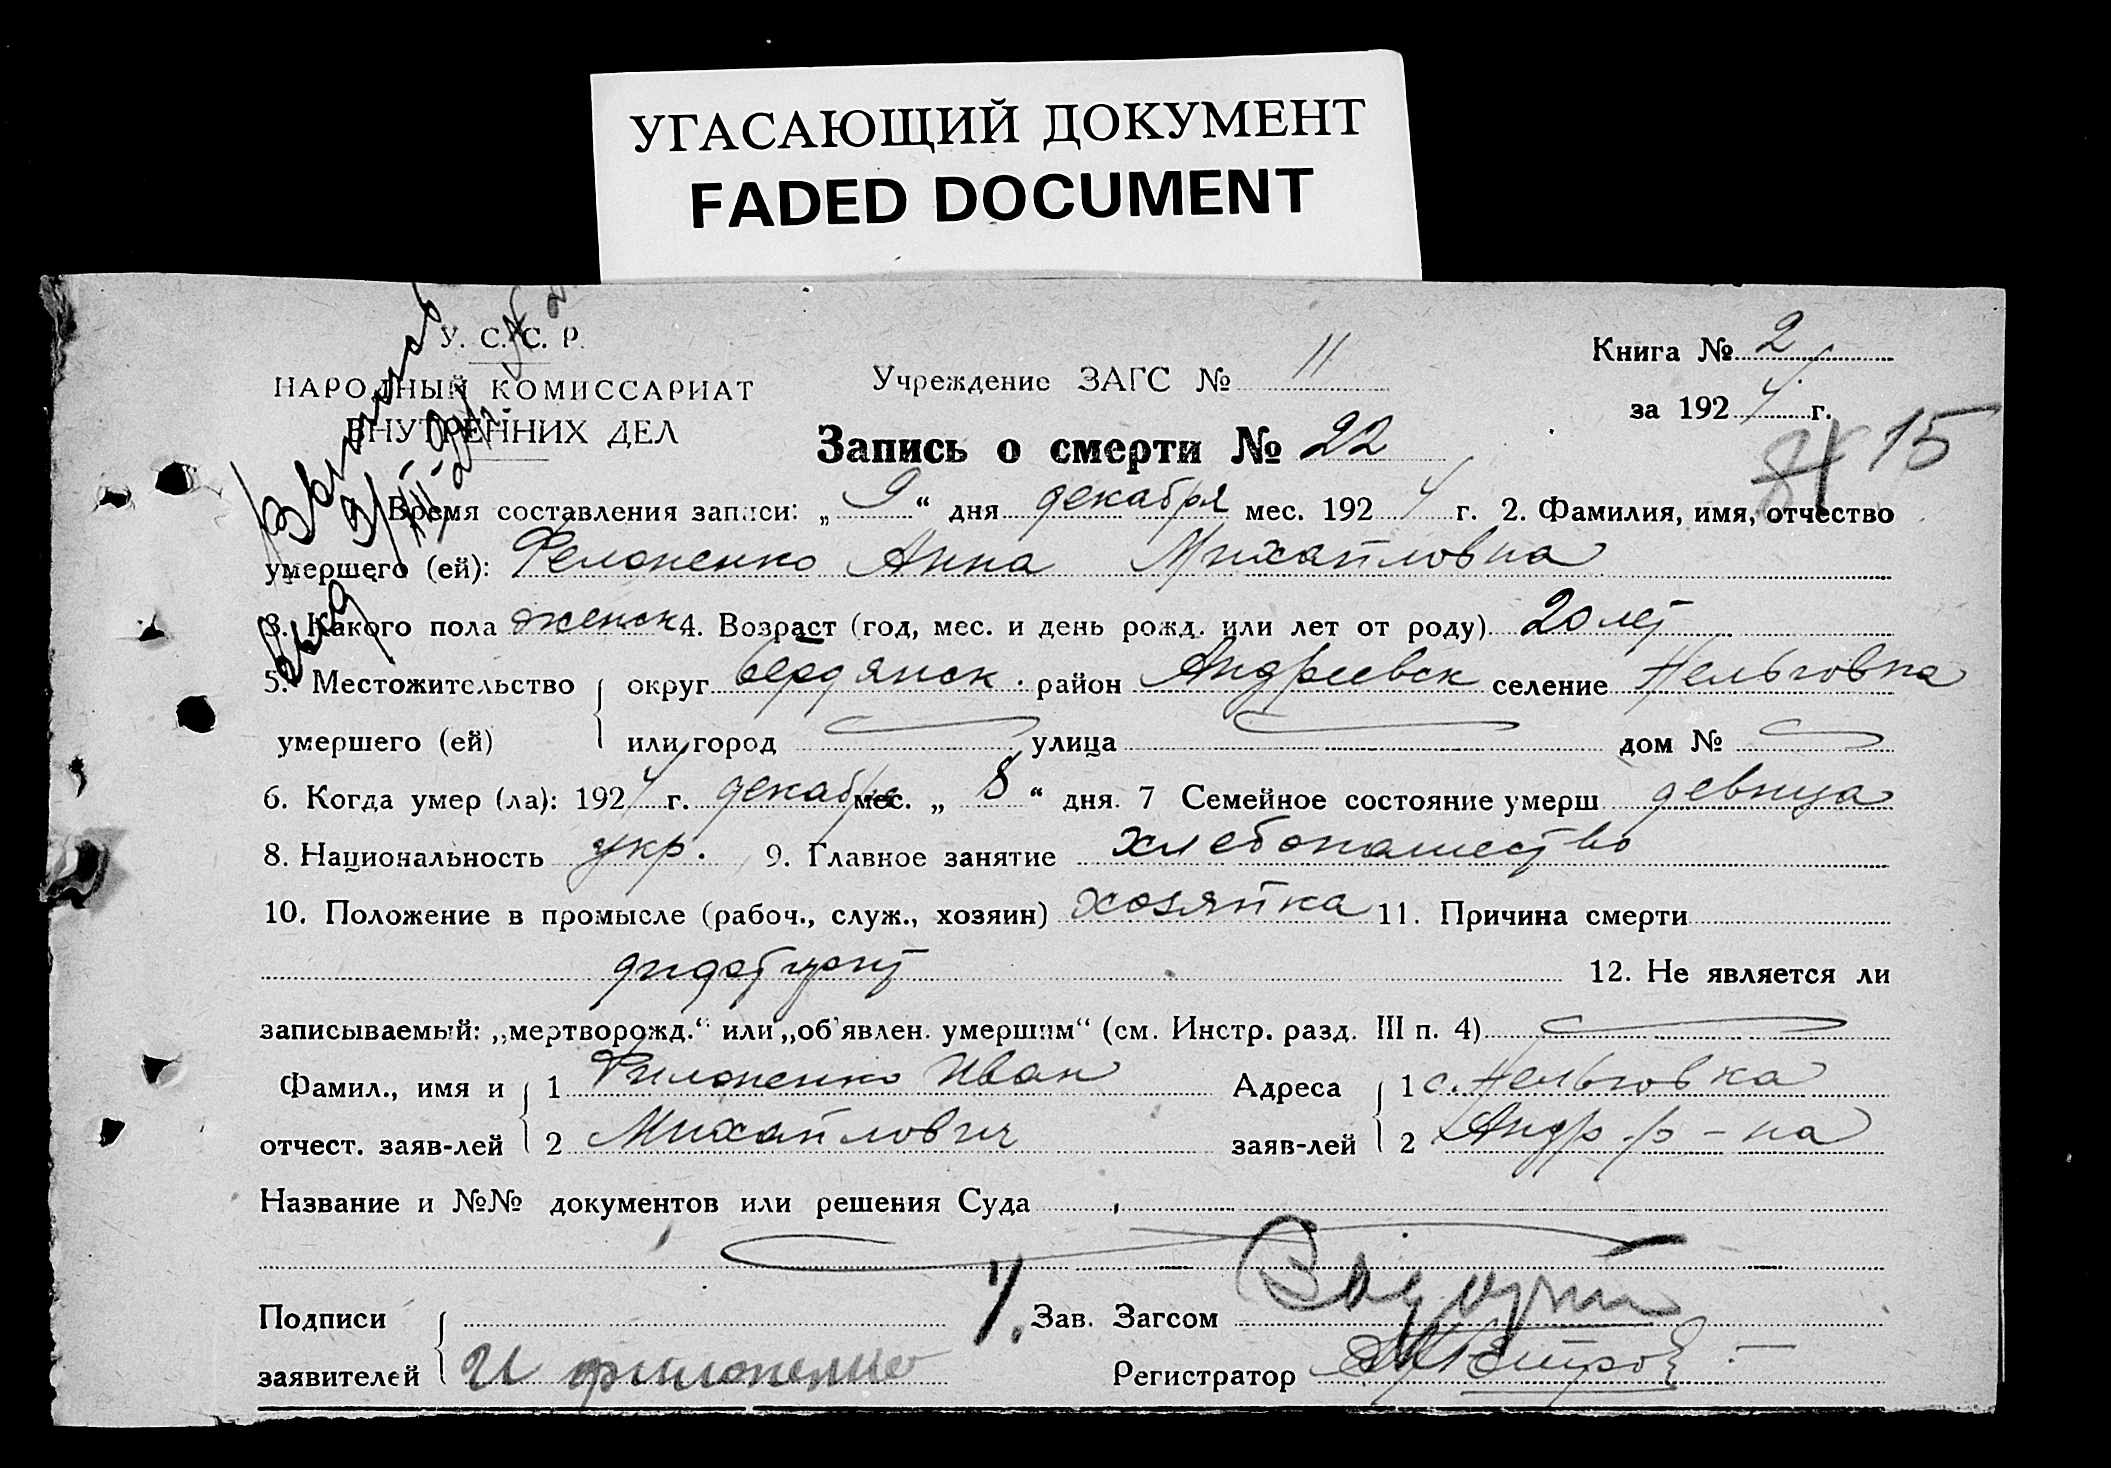 УГАСАЮЩИЙ ДОКУМЕНТ
FADED DOCUMENT
У. С. С. Р.
НАРОДНЫЙ КОМИССАРИАТ
ВНУТРЕННИХ ДЕЛ
Учреждение ЗАГС № 11
Книга № 2
за 1924 г.
15
Запись о смерти № 22
1. Время составления записи: „ 9 “ дня декабря мес. 1924 г. 2. Фамилия, имя, отчество
умершего (ей): Филоненко Анна Михайловна
3. Какого пола женск 4. Возраст (год, мес. и день рожд. или лет от роду) 20 лет
5. Местожительство округ Бердянск. район Андреевск селение Нельговка
умершего (ей) или город улица дом №
6. Когда умер (ла): 1924 г. декабря мес. „ 8 “ дня. 7 Семейное состояние умерш девица
8. Национальность укр. 9. Главное занятие хлебопашество
10. Положение в промысле (рабоч., служ., хозяин) хозяйка 11. Причина смерти
12. Не является ли
записываемый: „мертворожд.“ или „об'явлен. умершим“ (см. Инстр. разд. III п. 4)
Фамил., имя и 1 Филоненко Иван Адреса 1 с. Нельговка
отчест. заяв-лей 2 Михайлович заяв-лей 2 Андр. р-на
Название и №№ документов или решения Суда
Подписи Зав. Загсом
заявителей И Филоненко Регистратор